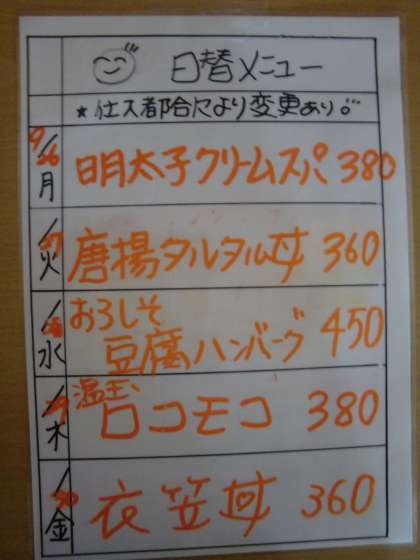 日替メニュー
★仕入都合により変更あり。
9/26 月 明太子クリームスパ 380
/27 火 唐揚タルタル丼 360
/28 水 おろしそ
豆腐ハンバーグ 450
/29 木 温玉、
ロコモコ 380
/30 金 衣笠丼 360